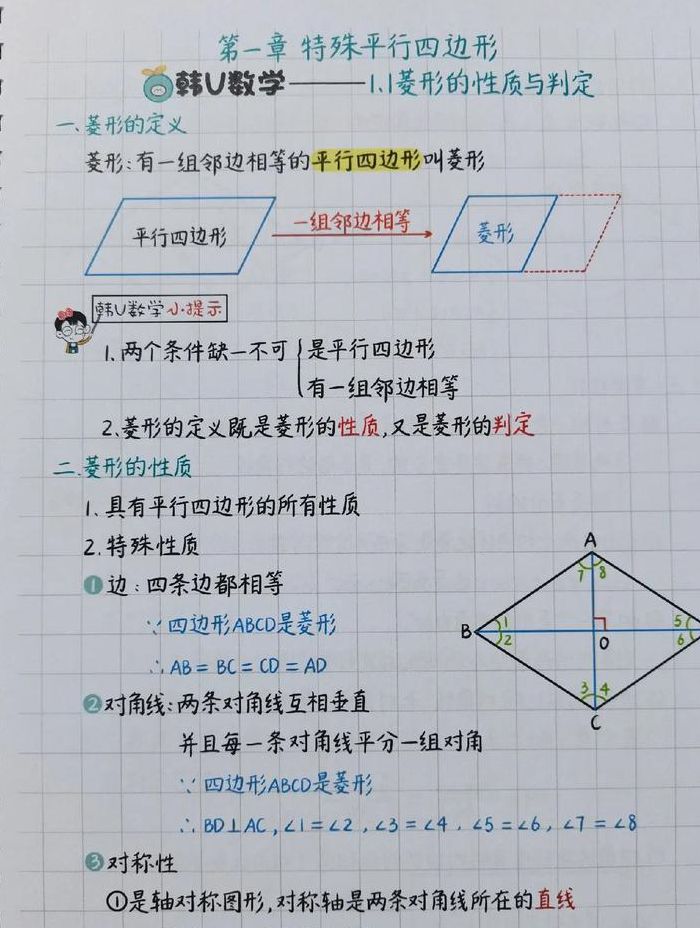 第一章 特殊平行四边形
韩U数学——1.1菱形的性质与判定
一、菱形的定义
菱形:有一组邻边相等的平行四边形叫菱形
平行四边形 一组邻边相等 菱形
韩U数学小提示
1、两个条件缺一不可{是平行四边形
有一组邻边相等
2、菱形的定义既是菱形的性质,又是菱形的判定
二、菱形的性质
1、具有平行四边形的所有性质
2、特殊性质
❶边:四条边都相等
∵四边形ABCD是菱形
∴AB=BC=CD=AD
A
7 8
B 1 2 O 5 6
3 4
C
❷对角线:两条对角线互相垂直
并且每一条对角线平分一组对角
∵四边形ABCD是菱形
∴BD⊥AC,∠1=∠2,∠3=∠4,∠5=∠6,∠7=∠8
❸对称性
①是轴对称图形,对称轴是两条对角线所在的直线